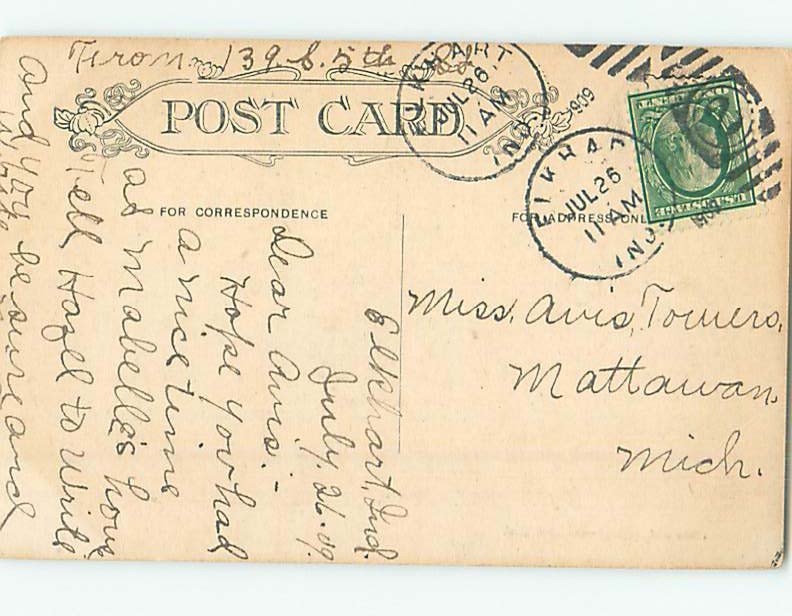 139 S. 5th St.
POST CARD
FOR CORRESPONDENCE
FOR ADDRESS ONLY
ELKHART
JUL 26
11 AM
IND.
1909
ELKHART
JUL 26
11 AM
IND.
1909
Miss, Avis, Towers,
Mattawan,
Mich.
Elkhart, Ind.
July, 26. 09.
Dear Avis:-
Hope you had
a nice time
at Mabelle's hous
Tell Hazel to write
and you be sure and
write